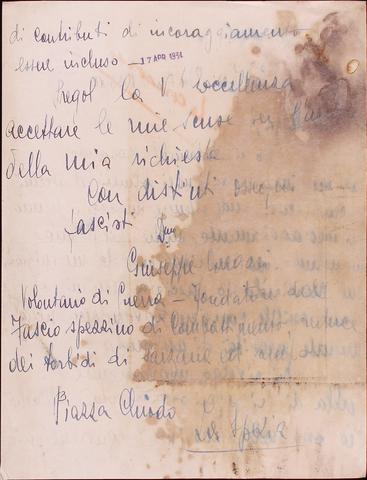 di contributi di incoraggiamento
essere incluso —
17 APR 1934
Pregol la V eccellenza
accettare le mie scuse
della mia richiesta
Con distinti
fascisti
Giuseppe
Volontario di Guerra — Fondatore del
Fascio spezzino di Combattimento
dei torbidi di Sarzana ed
Piazza Chiodo
Spezia